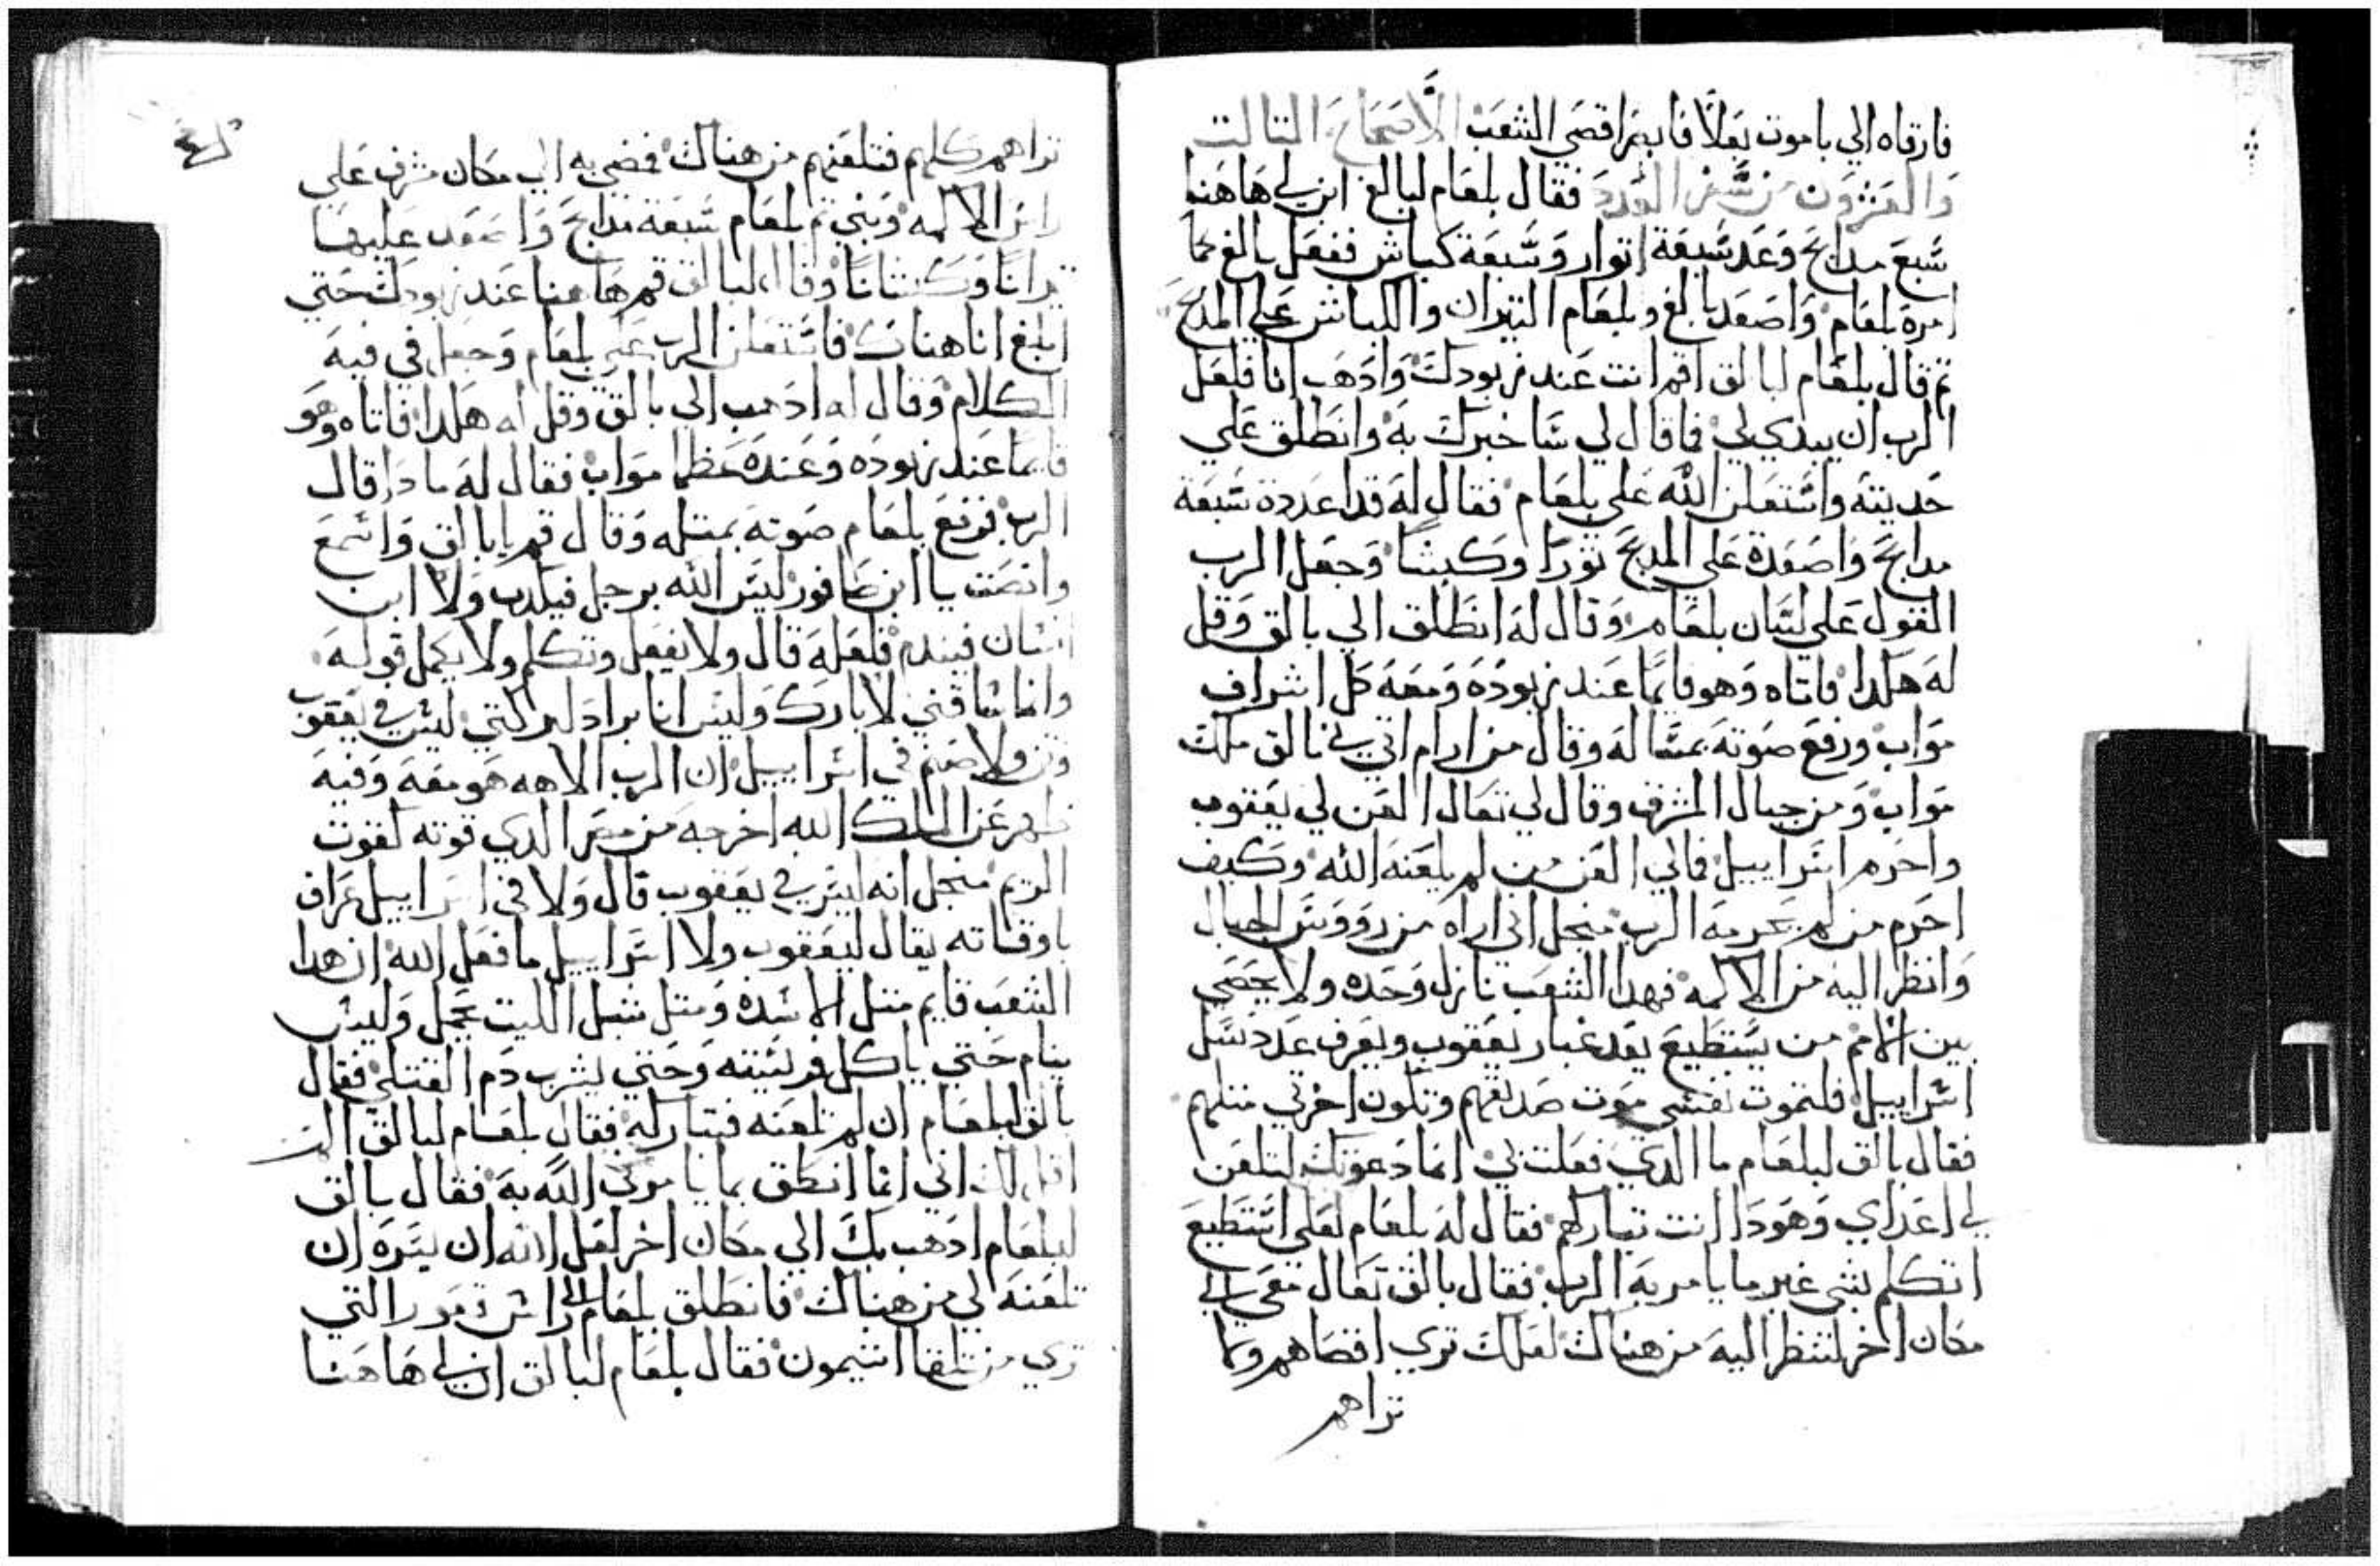 فارقاه الي باموت بعلا فابصر اقصي الشعب الاصحاح التالت
والعشرون من سفر العدد فقال بلعام لبالغ ابن لي هاهنا
سبع مدابح وعد سبعة اتوار وسبعة كباش ففعل بالغ كما
امره بلعام واصعد بالغ وبلعام التيران والكباش علي المدبح
تم قال بلعام لبالق اقم انت عند زبودك وادهب انا فلعل
الرب ان يبدي لي فما قال لي ساخبرك به وانطلق علي
حديته واستعلن الله علي بلعام فقال له قد اعددة سبعة
مدابح واصعدة علي المدبح تورا وكبشا وجعل الرب
القول علي لسان بلعام وقال له انطلق الي بالق وقل
له هكدا فاتاه وهو قايما عند زبوده ومعه كل اشراف
مواب ورفع صوته بمتاله وقال من ارام اتي بي بالق ملك
مواب ومن جبال المشرق وقال لي تعال العن لي يعقوب
واحرم اسراييل فماني العن من لم يلعنه الله وكيف
احرم من لم يحرمه الرب منجل اني اراه من رووس الجبال
وانظر اليه من الاكمه فهدا الشعب نازل وحده ولا يحصي
بين الامم من يستطيع يعد غبار يعقوب ويعرف عدد نسل
اسراييل فلتموت نفسي موت صديقهم وتكون اخرتي متلهم
فقال بالق لبلعام ما الدي فعلت بي انما دعوتك لتلعن
لي اعداي وهودا انت تباركهم فقال له بلعام لعلي استطيع
اتكلم بشي غير ما يامر به الرب فقال بالق تعال معي الي
مكان اخر لتنظر اليه من هناك لعلك تري اقصاهم وما
تراهم
تراهم كلهم فتلعنهم من هناك فمضي به الي مكان مشرف علي
راس الاكمه وبني تم بلعام سبعة مدابح واصعد عليها
تيرانا وكبشانا وقال لبالق قم هاهنا عند زبودك حتي
ابلغ انا هناك فاستعلن الرب علي بلعام وجعل في فيه
الكلام وقال له ادهب الي بالق وقل له هكدا فاتاه وهو
قايما عند زبوده وعنده عظما مواب فقال له مادا قال
الرب فرفع بلعام صوته بمتله وقال قم يابالق واسمع
وانصت يا ابن صافور ليس الله برجل فيكدب ولا ابن
انسان فيندم فلعله قال ولا يفعل وتكلم ولا يكمل قوله
وانما ساقني لابارك وليس انا براد البركتي ليس في يعقوب
وتن ولا صنم في اسراييل ان الرب الاهه هو معه وفيه
ظهر عز الملك الله اخرجه من مصر الدي قوته كقوت
الريم منجل انه ليس في يعقوب قال ولا في اسراييل عراف
باوقاته يقال ليعقوب ولا اسراييل ما فعل الله ان هدا
الشعب قايم متل الاسده ومتل شبل الليت يحمل وليس
ينام حتي ياكل فريسته وحتي يشرب دم القتلي فقال
بالق لبلعام ان لم تلعنه فتباركه فقال بلعام لبالق الم
اقل لك اني انما انطق بما يامرني الله به فقال بالق
لبلعام ادهب بك الي مكان اخر لعل الله ان يسره ان
تلعنه لي من هناك فانطلق بلعام الي راس فعور التي
تري من تلقا اشيمون فقال بلعام لبالق ابن لي هاهنا